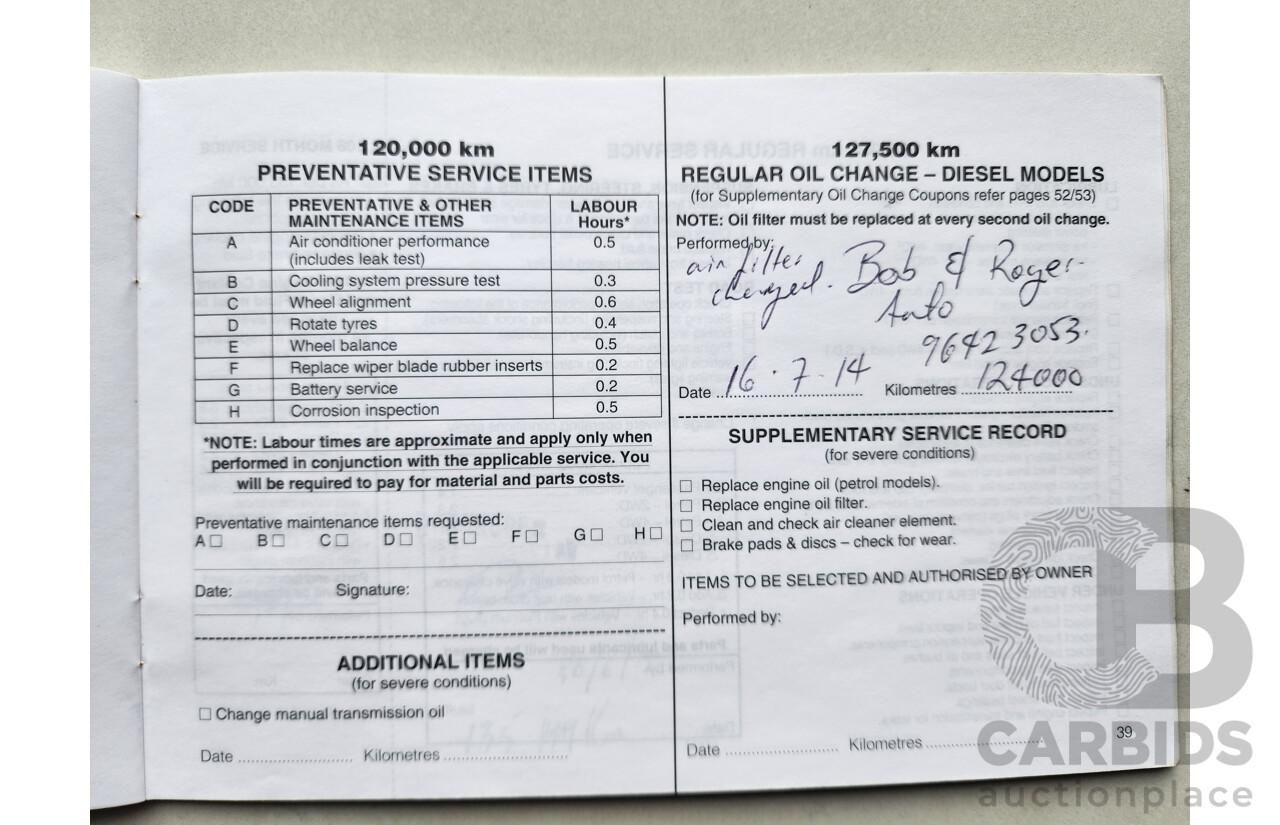 120,000 km
PREVENTATIVE SERVICE ITEMS
CODE PREVENTATIVE & OTHER MAINTENANCE ITEMS LABOUR Hours*
A Air conditioner performance (includes leak test) 0.5
B Cooling system pressure test 0.3
C Wheel alignment 0.6
D Rotate tyres 0.4
E Wheel balance 0.5
F Replace wiper blade rubber inserts 0.2
G Battery service 0.2
H Corrosion inspection 0.5
*NOTE: Labour times are approximate and apply only when
performed in conjunction with the applicable service. You
will be required to pay for material and parts costs.
Preventative maintenance items requested:
A☐ B☐ C☐ D☐ E☐ F☐ G☐ H☐
Date: Signature:
ADDITIONAL ITEMS
(for severe conditions)
☐ Change manual transmission oil
Date ............................ Kilometres ..............................
127,500 km
REGULAR OIL CHANGE – DIESEL MODELS
(for Supplementary Oil Change Coupons refer pages 52/53)
NOTE: Oil filter must be replaced at every second oil change.
Performed by:
air filter
changed. Bob & Roger
Auto
96423053.
Date 16.7.14 Kilometres 124000
SUPPLEMENTARY SERVICE RECORD
(for severe conditions)
☐ Replace engine oil (petrol models).
☐ Replace engine oil filter.
☐ Clean and check air cleaner element.
☐ Brake pads & discs – check for wear.
ITEMS TO BE SELECTED AND AUTHORISED BY OWNER
Performed by:
Date ............................ Kilometres ............................
39
CB
CARBIDS
auctionplace